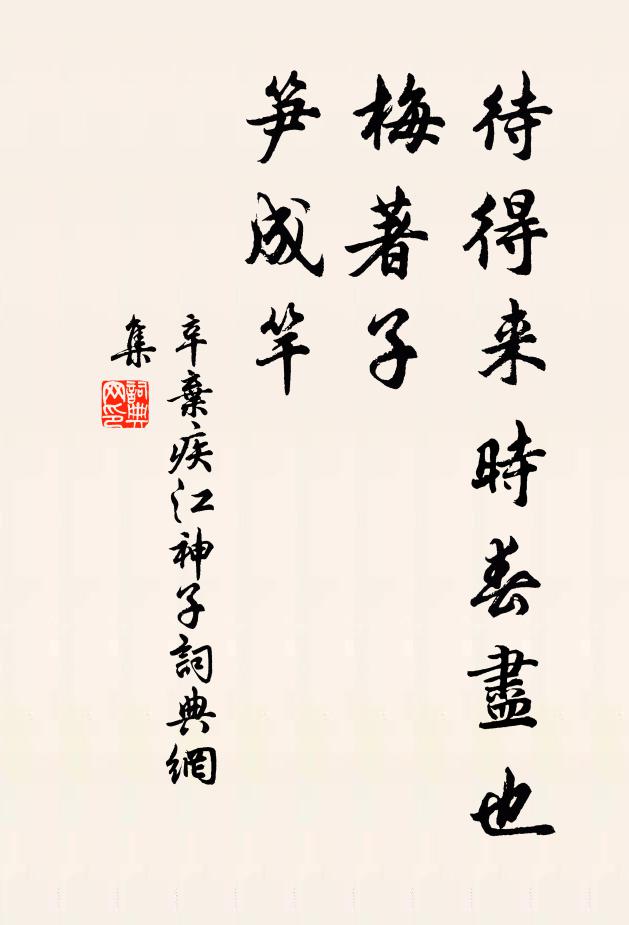 待得来時春盡也
梅著子
笋成竿
辛棄疾江神子詞典網
集
詞典網印